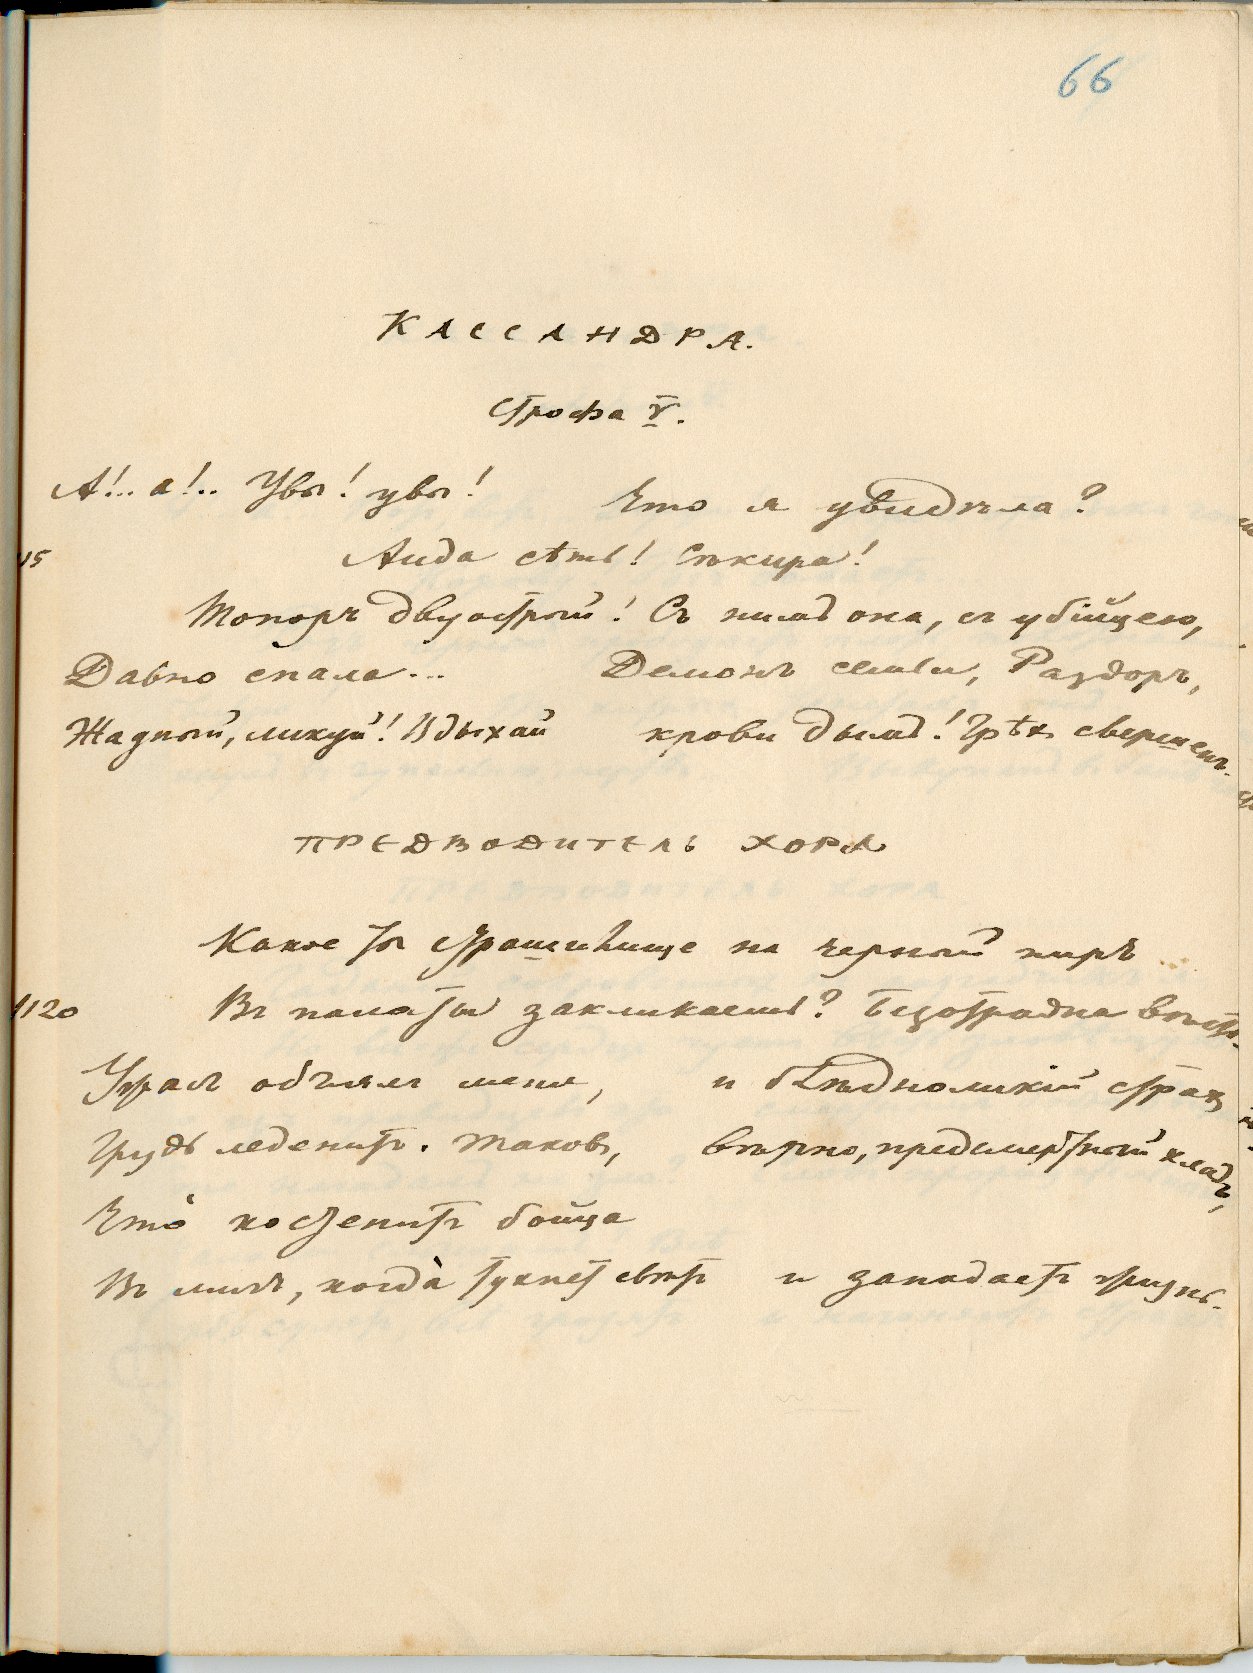 66
КАССАНДРА.
Строфа V.
А!.. а!.. Увы! увы! Что я увидѣла?
15 Аида сѣть! Сѣкира!
Топоръ двуострый! Съ нимъ она, съ убійцею,
Давно спала... Демонъ семьи, Раздоръ,
Жадный, ликуй! Вдыхай крови дымъ! Грѣхъ свершенъ.
ПРЕДВОДИТЕЛЬ ХОРА
Какое ты страшилище на черный пиръ
1120 Въ палаты закликаешь? Безотрадна вѣсть.
Ужасъ объялъ меня, и блѣдноликій страхъ
Грудь леденитъ. Таковъ, вѣрно, предсмертный хладъ,
Что̀ костенитъ бойца
Въ мигъ, когда̀ тухнетъ свѣтъ и западаетъ жизнь.